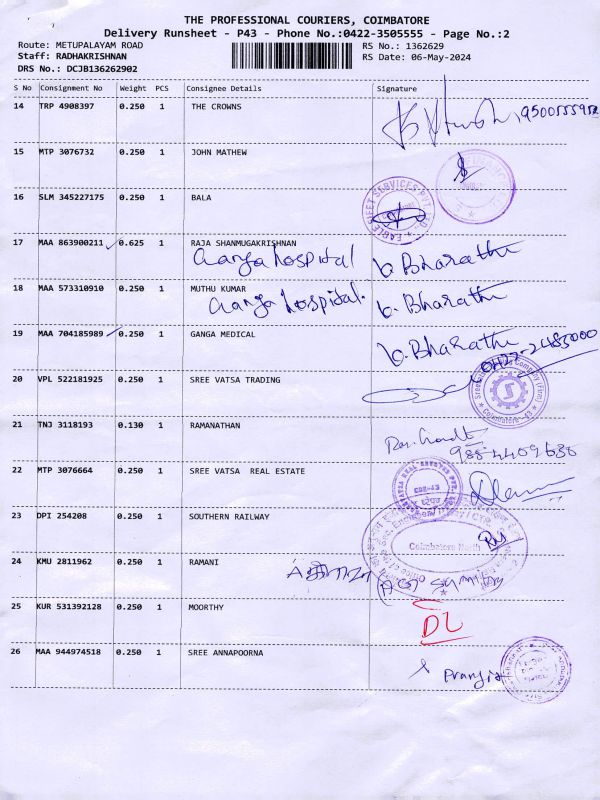 THE PROFESSIONAL COURIERS, COIMBATORE
Delivery Runsheet - P43 - Phone No.:0422-3505555 - Page No.:2
Route: METUPALAYAM ROAD RS No.: 1362629
Staff: RADHAKRISHNAN RS Date: 06-May-2024
DRS No.: DCJB136262902
S No Consignment No Weight PCS Consignee Details Signature
14 TRP 4908397 0.250 1 THE CROWNS
15 MTP 3076732 0.250 1 JOHN MATHEW
16 SLM 345227175 0.250 1 BALA
EAGLE FLEET SERVICES PVT. LTD.
17 MAA 863900211 0.625 1 RAJA SHANMUGAKRISHNAN
Ganga hospital b. Bharathi
18 MAA 573310910 0.250 1 MUTHU KUMAR
Ganga hospital. b. Bharathi
19 MAA 704185989 0.250 1 GANGA MEDICAL
b. Bharathi
0422-2485000
20 VPL 522181925 0.250 1 SREE VATSA TRADING
Coimbatore-43
21 TNJ 3118193 0.130 1 RAMANATHAN
22 MTP 3076664 0.250 1 SREE VATSA REAL ESTATE
CBE-43
23 DPI 254208 0.250 1 SOUTHERN RAILWAY
Coimbatore North
24 KMU 2811962 0.250 1 RAMANI
25 KUR 531392128 0.250 1 MOORTHY
DL
26 MAA 944974518 0.250 1 SREE ANNAPOORNA